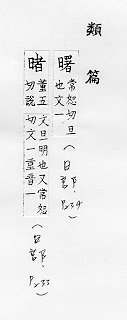 類篇
曙常恕切旦也文一（日部，P234）
暏董五切說文旦明也又常恕切文一重音一（日部，P233）